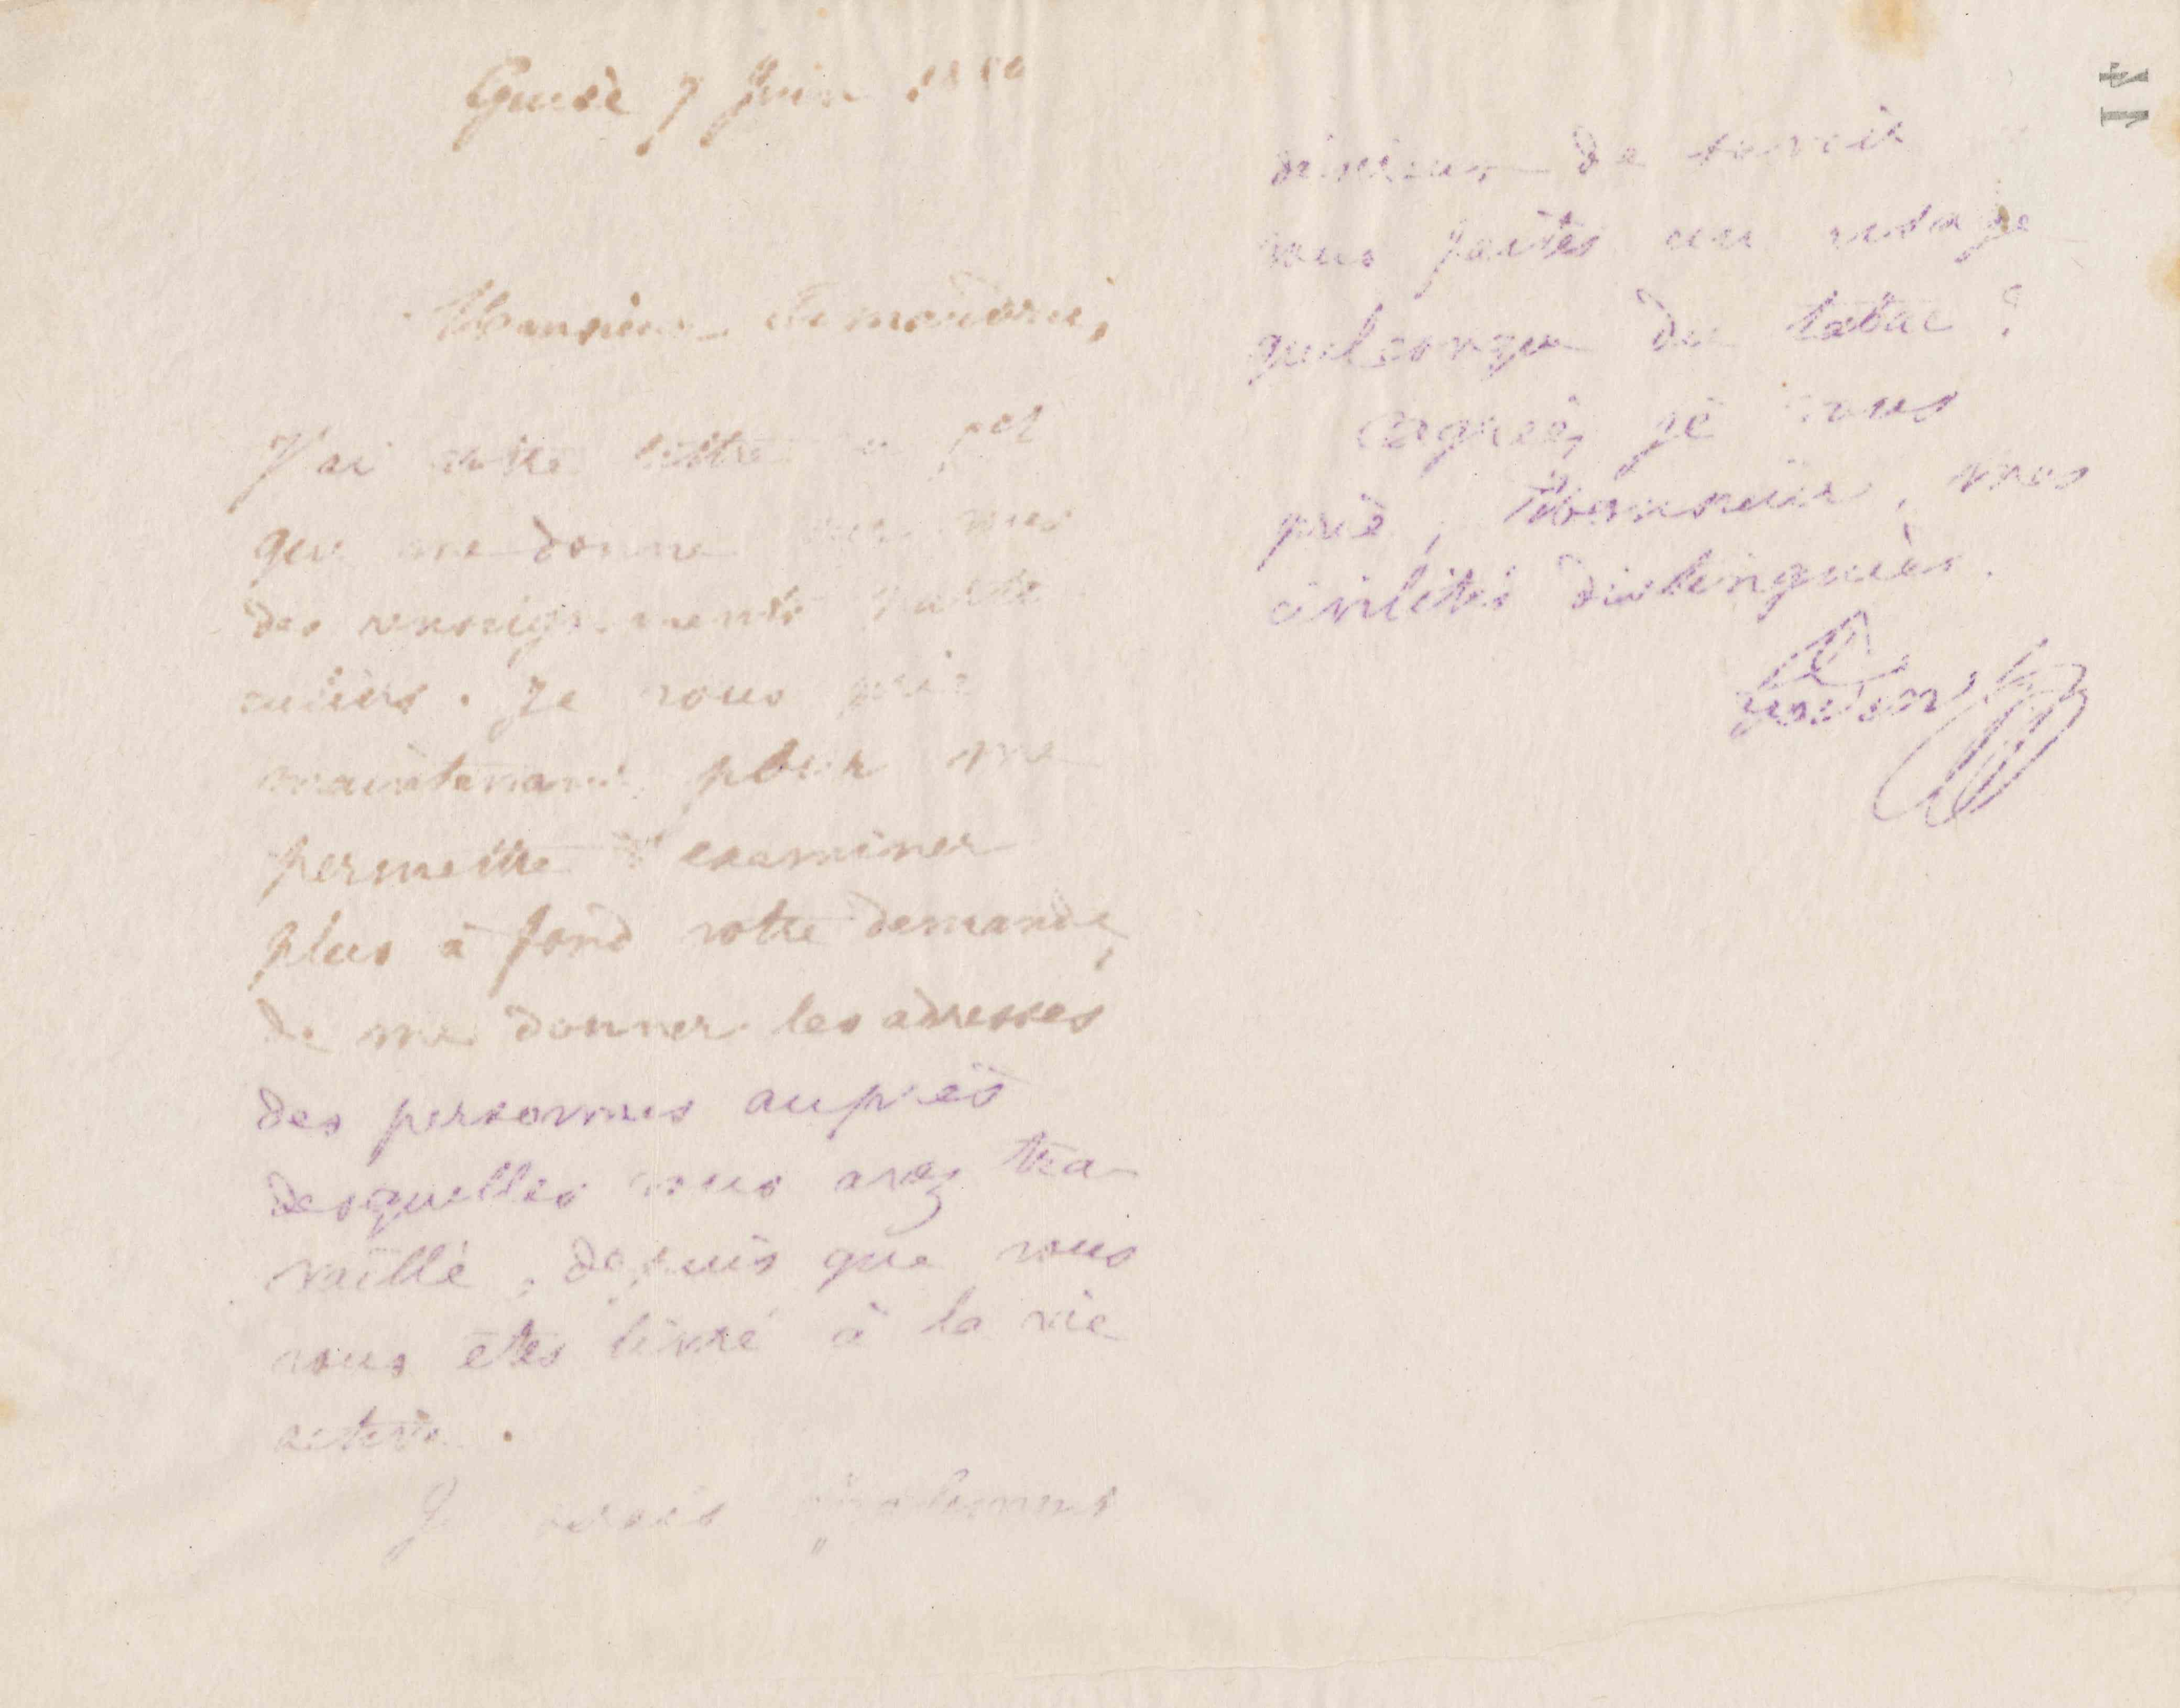 Guise 7 Juin 18
Monsieur
J'ai votre lettre
qui me donne
des renseignements parti
culiers. Je vous prie
maintenant pour me
permettre d'examiner
plus à fond votre demande,
de me donner les adresses
des personnes auprès
desquelles vous avez tra-
vaillé, depuis que vous
vous êtes livré à la vie
active.
Je serais également
désireux de savoir
vous faites un usage
quelconque du tabac ?
Agréez, je vous
prie, Monsieur, mes
civilités distinguées.
Godin